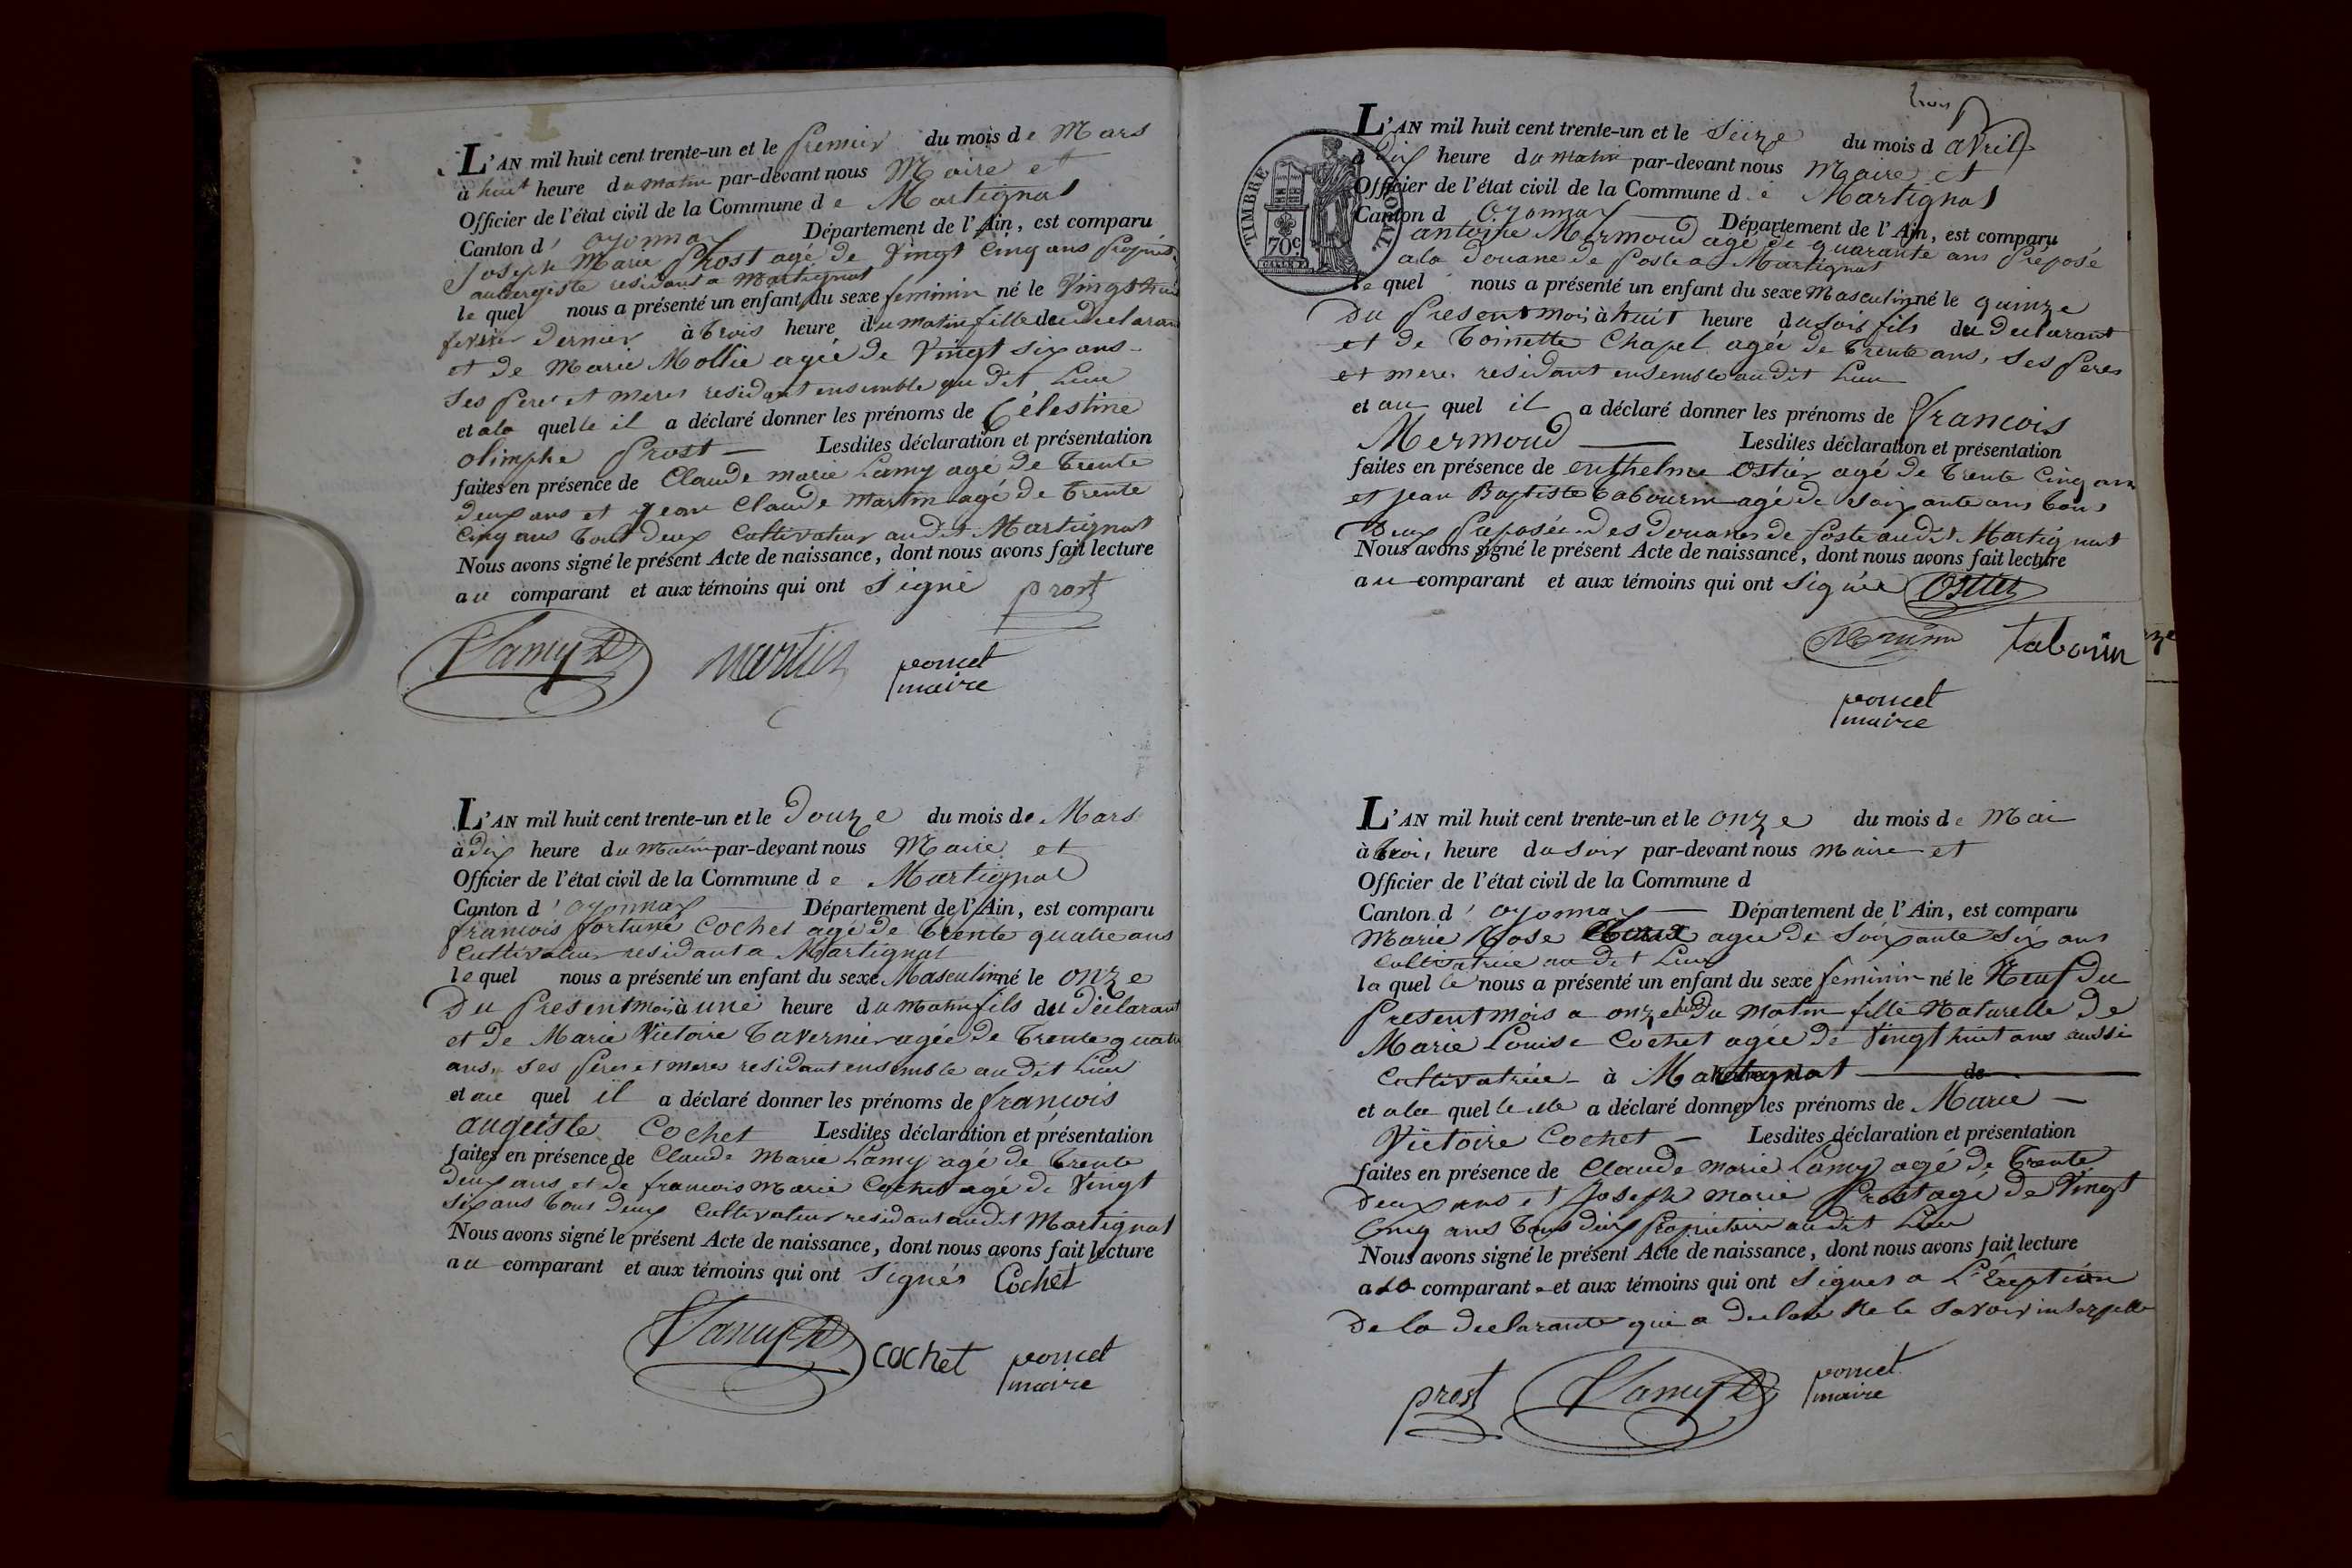 L'AN mil huit cent trente-un et le premier du mois de Mars
à huit heure du matin par-devant nous Maire et
Officier de l'état civil de la Commune de Martignat
Canton d' oyonnax Département de l'Ain, est comparu
Joseph Marie Prost agé de Vingt Cinq ans
aubergiste residant a Martignat
le quel nous a présenté un enfant du sexe féminin né le Vingt huit
fevrier dernier à trois heure du matin fille du declarant
et de Marie Mollie agée de Vingt six ans
Ses pere et meres residant ensemble au dit Lieu
et a la quelle il a déclaré donner les prénoms de Célestine
olimphe Prost — Lesdites déclaration et présentation
faites en présence de Claude marie Lamy agé de trente
deux ans et jean Claude Martin agé de trente
Cinq ans tout deux Cultivateur au dit Martignat
Nous avons signé le présent Acte de naissance, dont nous avons fait lecture
au comparant et aux témoins qui ont Signé prost
Lamy martin poncet
maire
L'AN mil huit cent trente-un et le Douze du mois de Mars
à dix heure du Matin par-devant nous Maire et
Officier de l'état civil de la Commune de Martignat
Canton d' oyonnax Département de l'Ain, est comparu
francois fortuné Cochet agé de trente quatre ans
Cultivateur residant a Martignat
le quel nous a présenté un enfant du sexe Masculin né le onze
Du present mois à une heure du Matin fils du déclarant
et de Marie Victoire Tavernier agée de trente quatre
ans, ses peres et meres residant ensemble au dit Lieu
et au quel il a déclaré donner les prénoms de francois
auguiste Cochet Lesdites déclaration et présentation
faites en présence de Claude Marie Lamy agé de trente
deux ans et de francois Marie Cochet agé de Vingt
six ans tous deux Cultivateur residant au dit Martignat
Nous avons signé le présent Acte de naissance, dont nous avons fait lecture
au comparant et aux témoins qui ont Signés Cochet
Lamy cochet poncet
maire
trois
L'AN mil huit cent trente-un et le Seize du mois d avril
à dix heure du Matin par-devant nous Maire et
Officier de l'état civil de la Commune de Martignat
Canton d oyonnax Département de l'Ain, est comparu
antoine Mermoud agé de quarante ans Préposé
a la Douane de Poste a Martignat
le quel nous a présenté un enfant du sexe Masculin né le quinze
Du Present mois à huit heure du soir fils du declarant
et de Toinette Chapel agée de trente ans, Ses peres
et mere residant ensemble au dit Lieu
et au quel il a déclaré donner les prénoms de francois
Mermoud — Lesdites déclaration et présentation
faites en présence de enthelme Ostier agé de trente Cinq ans
et jean Baptiste tabourin agé de soixante ans tous
Deux Préposée des Douanes de Poste au dit Martignat
Nous avons signé le présent Acte de naissance, dont nous avons fait lecture
au comparant et aux témoins qui ont Signée Ostier
tabourin
poncet
maire
TIMBRE ROYAL.
70c
L'AN mil huit cent trente-un et le onze du mois de Mai
à trois heure du soir par-devant nous Maire et
Officier de l'état civil de la Commune d
Canton d' oyonnax — Département de l'Ain, est comparu
Marie Rose agée de Soixante Six ans
Cultivatrice au dit Lieu
la quelle nous a présenté un enfant du sexe feminin né le Neuf du
Present mois a onze heure du matin fille Naturelle de
Marie Louise Cochet agée de Vingt huit ans aussi
Cultivatrice à Martignat
et a la quelle elle a déclaré donner les prénoms de Marie —
Victoire Cochet — Lesdites déclaration et présentation
faites en présence de Claude Marie Lamy agé de trente
Deux ans et Joseph Marie Prost agé de Vingt
Cinq ans tous deux Propriétaire au dit Lieu
Nous avons signé le présent Acte de naissance, dont nous avons fait lecture
a la comparante et aux témoins qui ont Signés a L'Exeption
De la declarante qui a declaré Ne le Savoir
prost Lamy poncet
maire